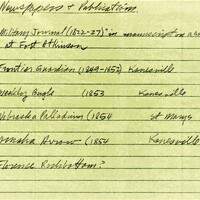 Newspapers + Publications
Military Journal (1822-27) in manuscript
at Fort Atkinson
Frontier Guardian (1849-1852) Kanesville
Weekly Bugle (1853 Kanesville
Nebraska Palladium (1854 St Marys
Omaha Arrow (1854 Kanesville
Florence Rockbottom?